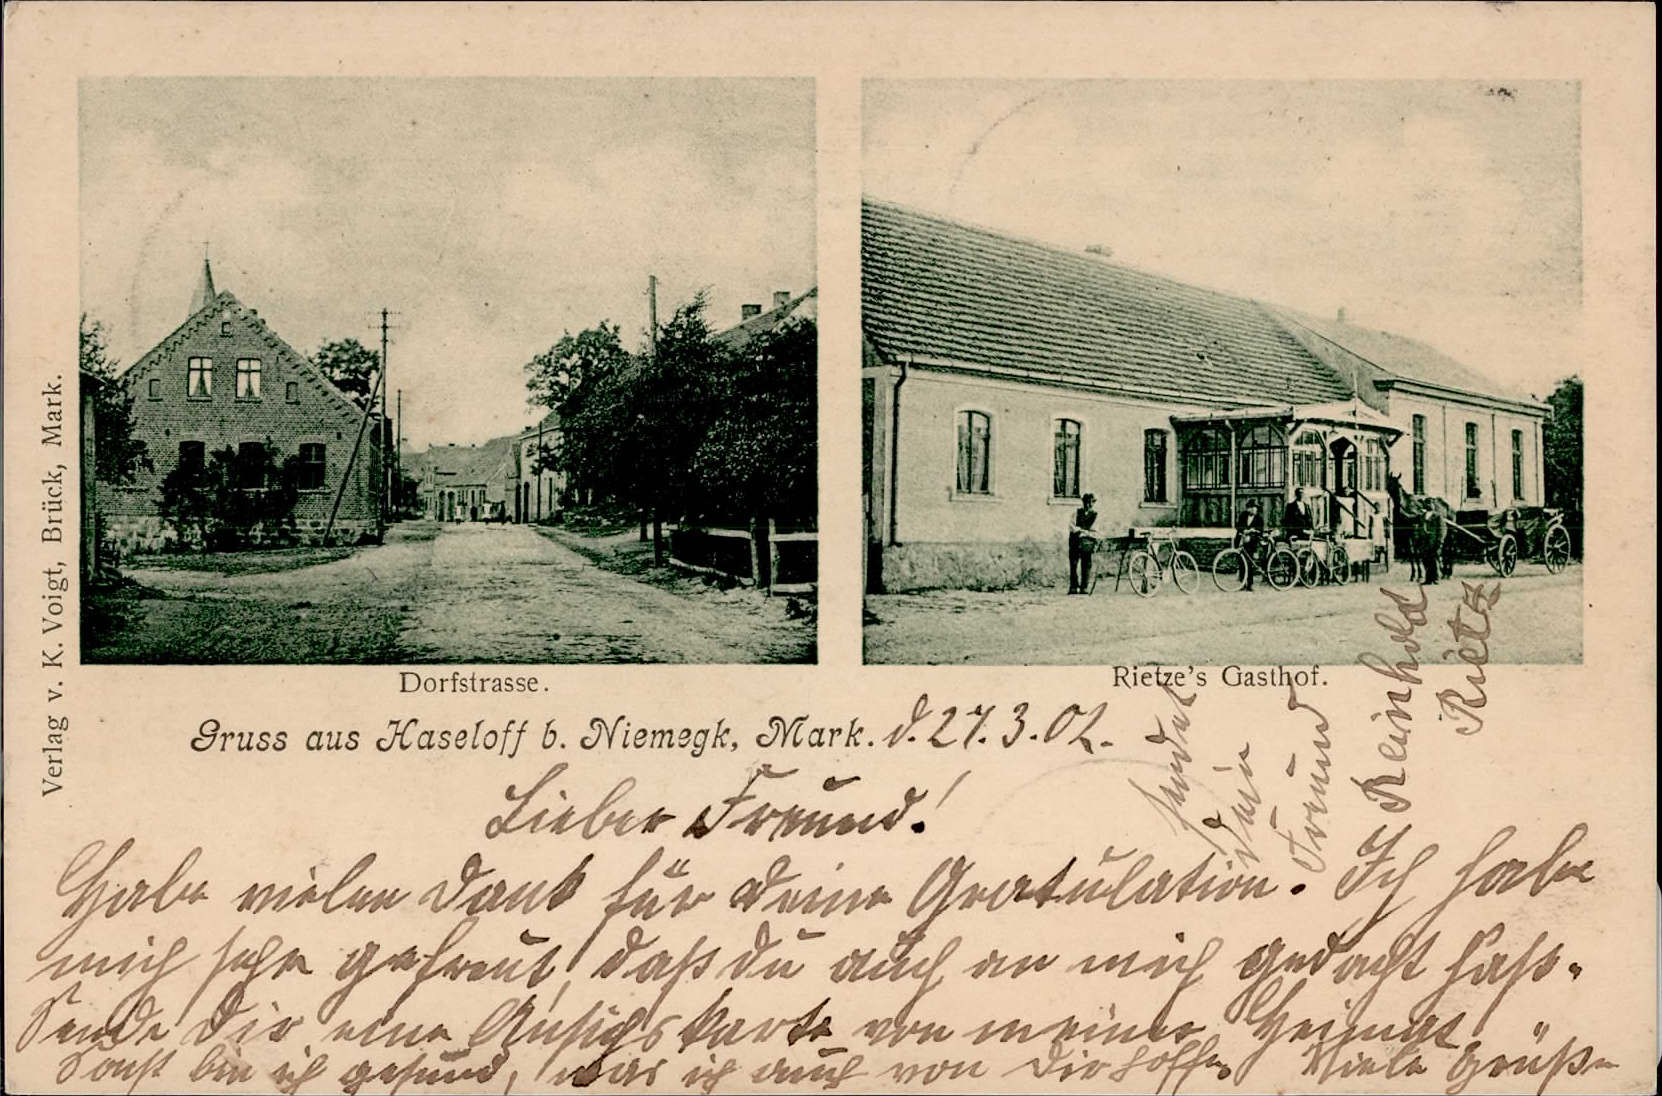 Verlag v. K. Voigt, Brück, Mark.
Dorfstrasse.
Rietze's Gasthof.
Gruss aus Haseloff b. Niemegk, Mark. d. 27.3.02.
Lieber Freund!
Habe vielen Dank für deine Gratulation. Ich habe
mich sehr gefreut, daß du auch an mich gedacht hast.
Sende Dir eine Ansichskarte von meiner Heimat.
Sonst bin ich gesund, was ich auch von Dir hoffe. Viele Grüße
sendet
Dein
Freund
Reinhold
Rietz